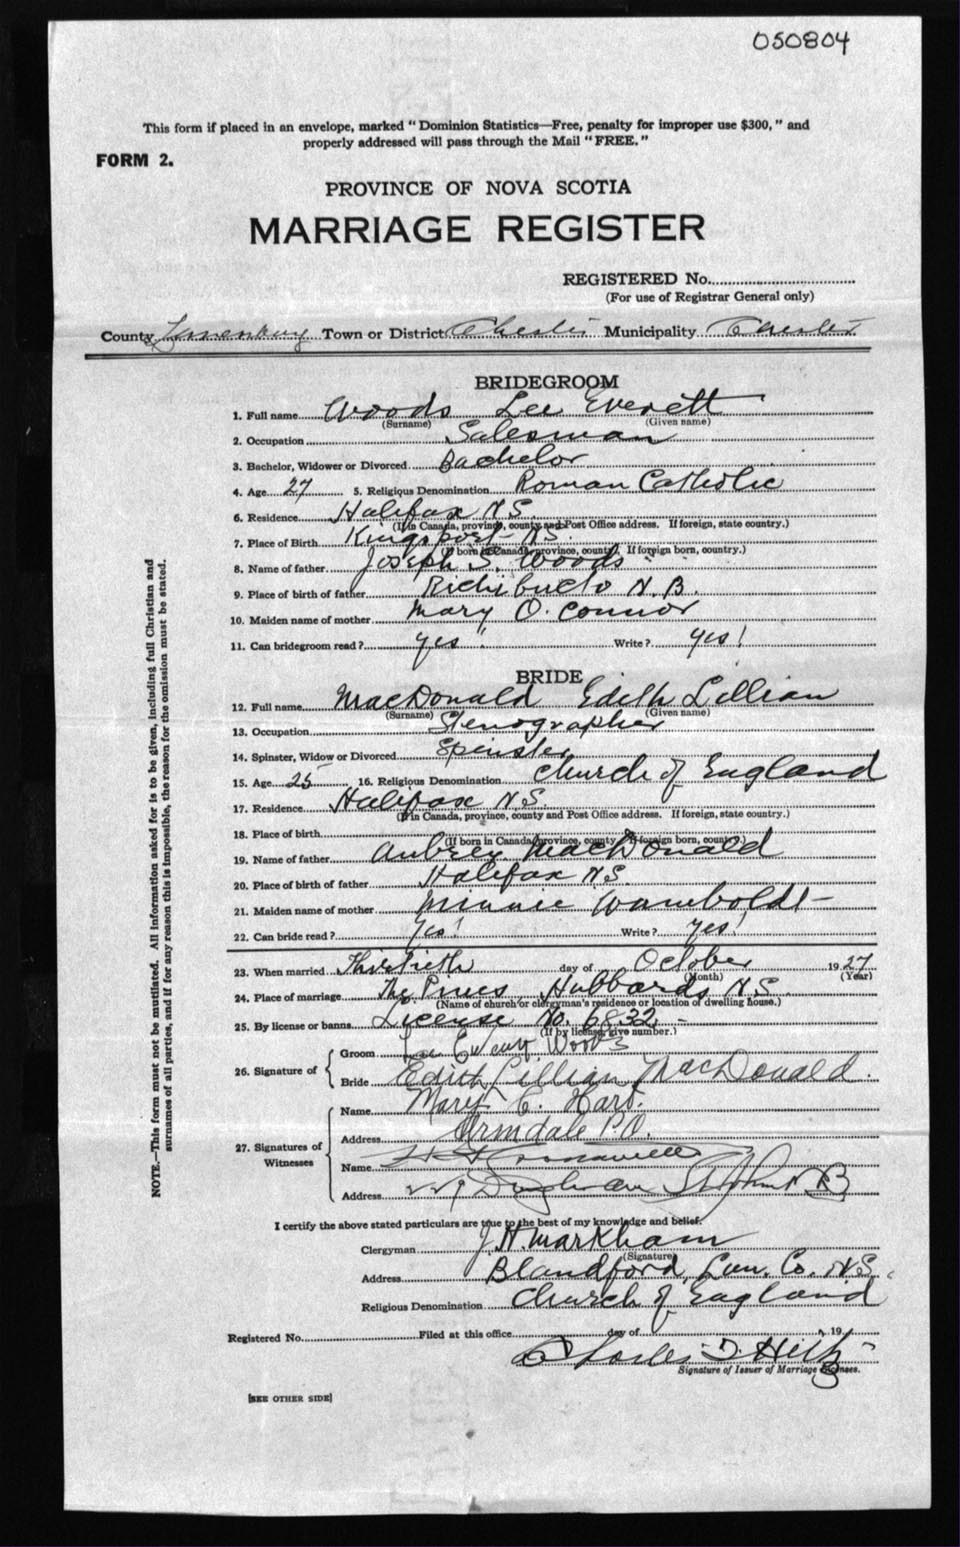 050804
This form if placed in an envelope, marked "Dominion Statistics—Free, penalty for improper use $300," and
properly addressed will pass through the Mail "FREE."
FORM 2.
PROVINCE OF NOVA SCOTIA
MARRIAGE REGISTER
REGISTERED No.
(For use of Registrar General only)
County Lunenburg Town or District Chester Municipality Chester
BRIDEGROOM
1. Full name Woods Lee Everett
(Surname) (Given name)
2. Occupation Salesman
3. Bachelor, Widower or Divorced Bachelor
4. Age 27 5. Religious Denomination Roman Catholic
6. Residence Halifax N.S.
(If in Canada, province, county and Post Office address. If foreign, state country.)
7. Place of Birth Kingsport N.S.
(If born in Canada, province, county. If foreign born, country.)
8. Name of father Joseph S. Woods
9. Place of birth of father Richibucto N.B.
10. Maiden name of mother Mary O. Connor
11. Can bridegroom read? yes Write? yes!
BRIDE
12. Full name MacDonald Edith Lillian
(Surname) (Given name)
13. Occupation Stenographer
14. Spinster, Widow or Divorced Spinster
15. Age 25 16. Religious Denomination Church of England
17. Residence Halifax N.S.
(If in Canada, province, county and Post Office address. If foreign, state country.)
18. Place of birth
(If born in Canada, province, county. If foreign born, country.)
19. Name of father Aubrey MacDonald
20. Place of birth of father Halifax N.S.
21. Maiden name of mother Minnie Wamboldt
22. Can bride read? Yes! Write? Yes!
23. When married Thirtieth day of October 1927
(Month) (Year)
24. Place of marriage The Pines Hubbards N.S.
(Name of church or clergyman's residence or location of dwelling house.)
25. By license or banns License No. 6832
(If by license, give number.)
26. Signature of Groom Lee Everett Woods
Bride Edith Lillian MacDonald.
27. Signatures of Witnesses Name Mary E. Hart.
Address Armdale P.O.
Name
Address 229 St John N B
I certify the above stated particulars are true to the best of my knowledge and belief.
Clergyman J. H. Markham
(Signature)
Address Blandford, Lun. Co. N.S.
Religious Denomination Church of England
Registered No. Filed at this office day of , 19
Charles D. Hiltz
Signature of Issuer of Marriage Licenses.
[SEE OTHER SIDE]
NOTE.—This form must not be mutilated. All information asked for is to be given, including full Christian and
surnames of all parties, and if for any reason this is impossible, the reason for the omission must be stated.